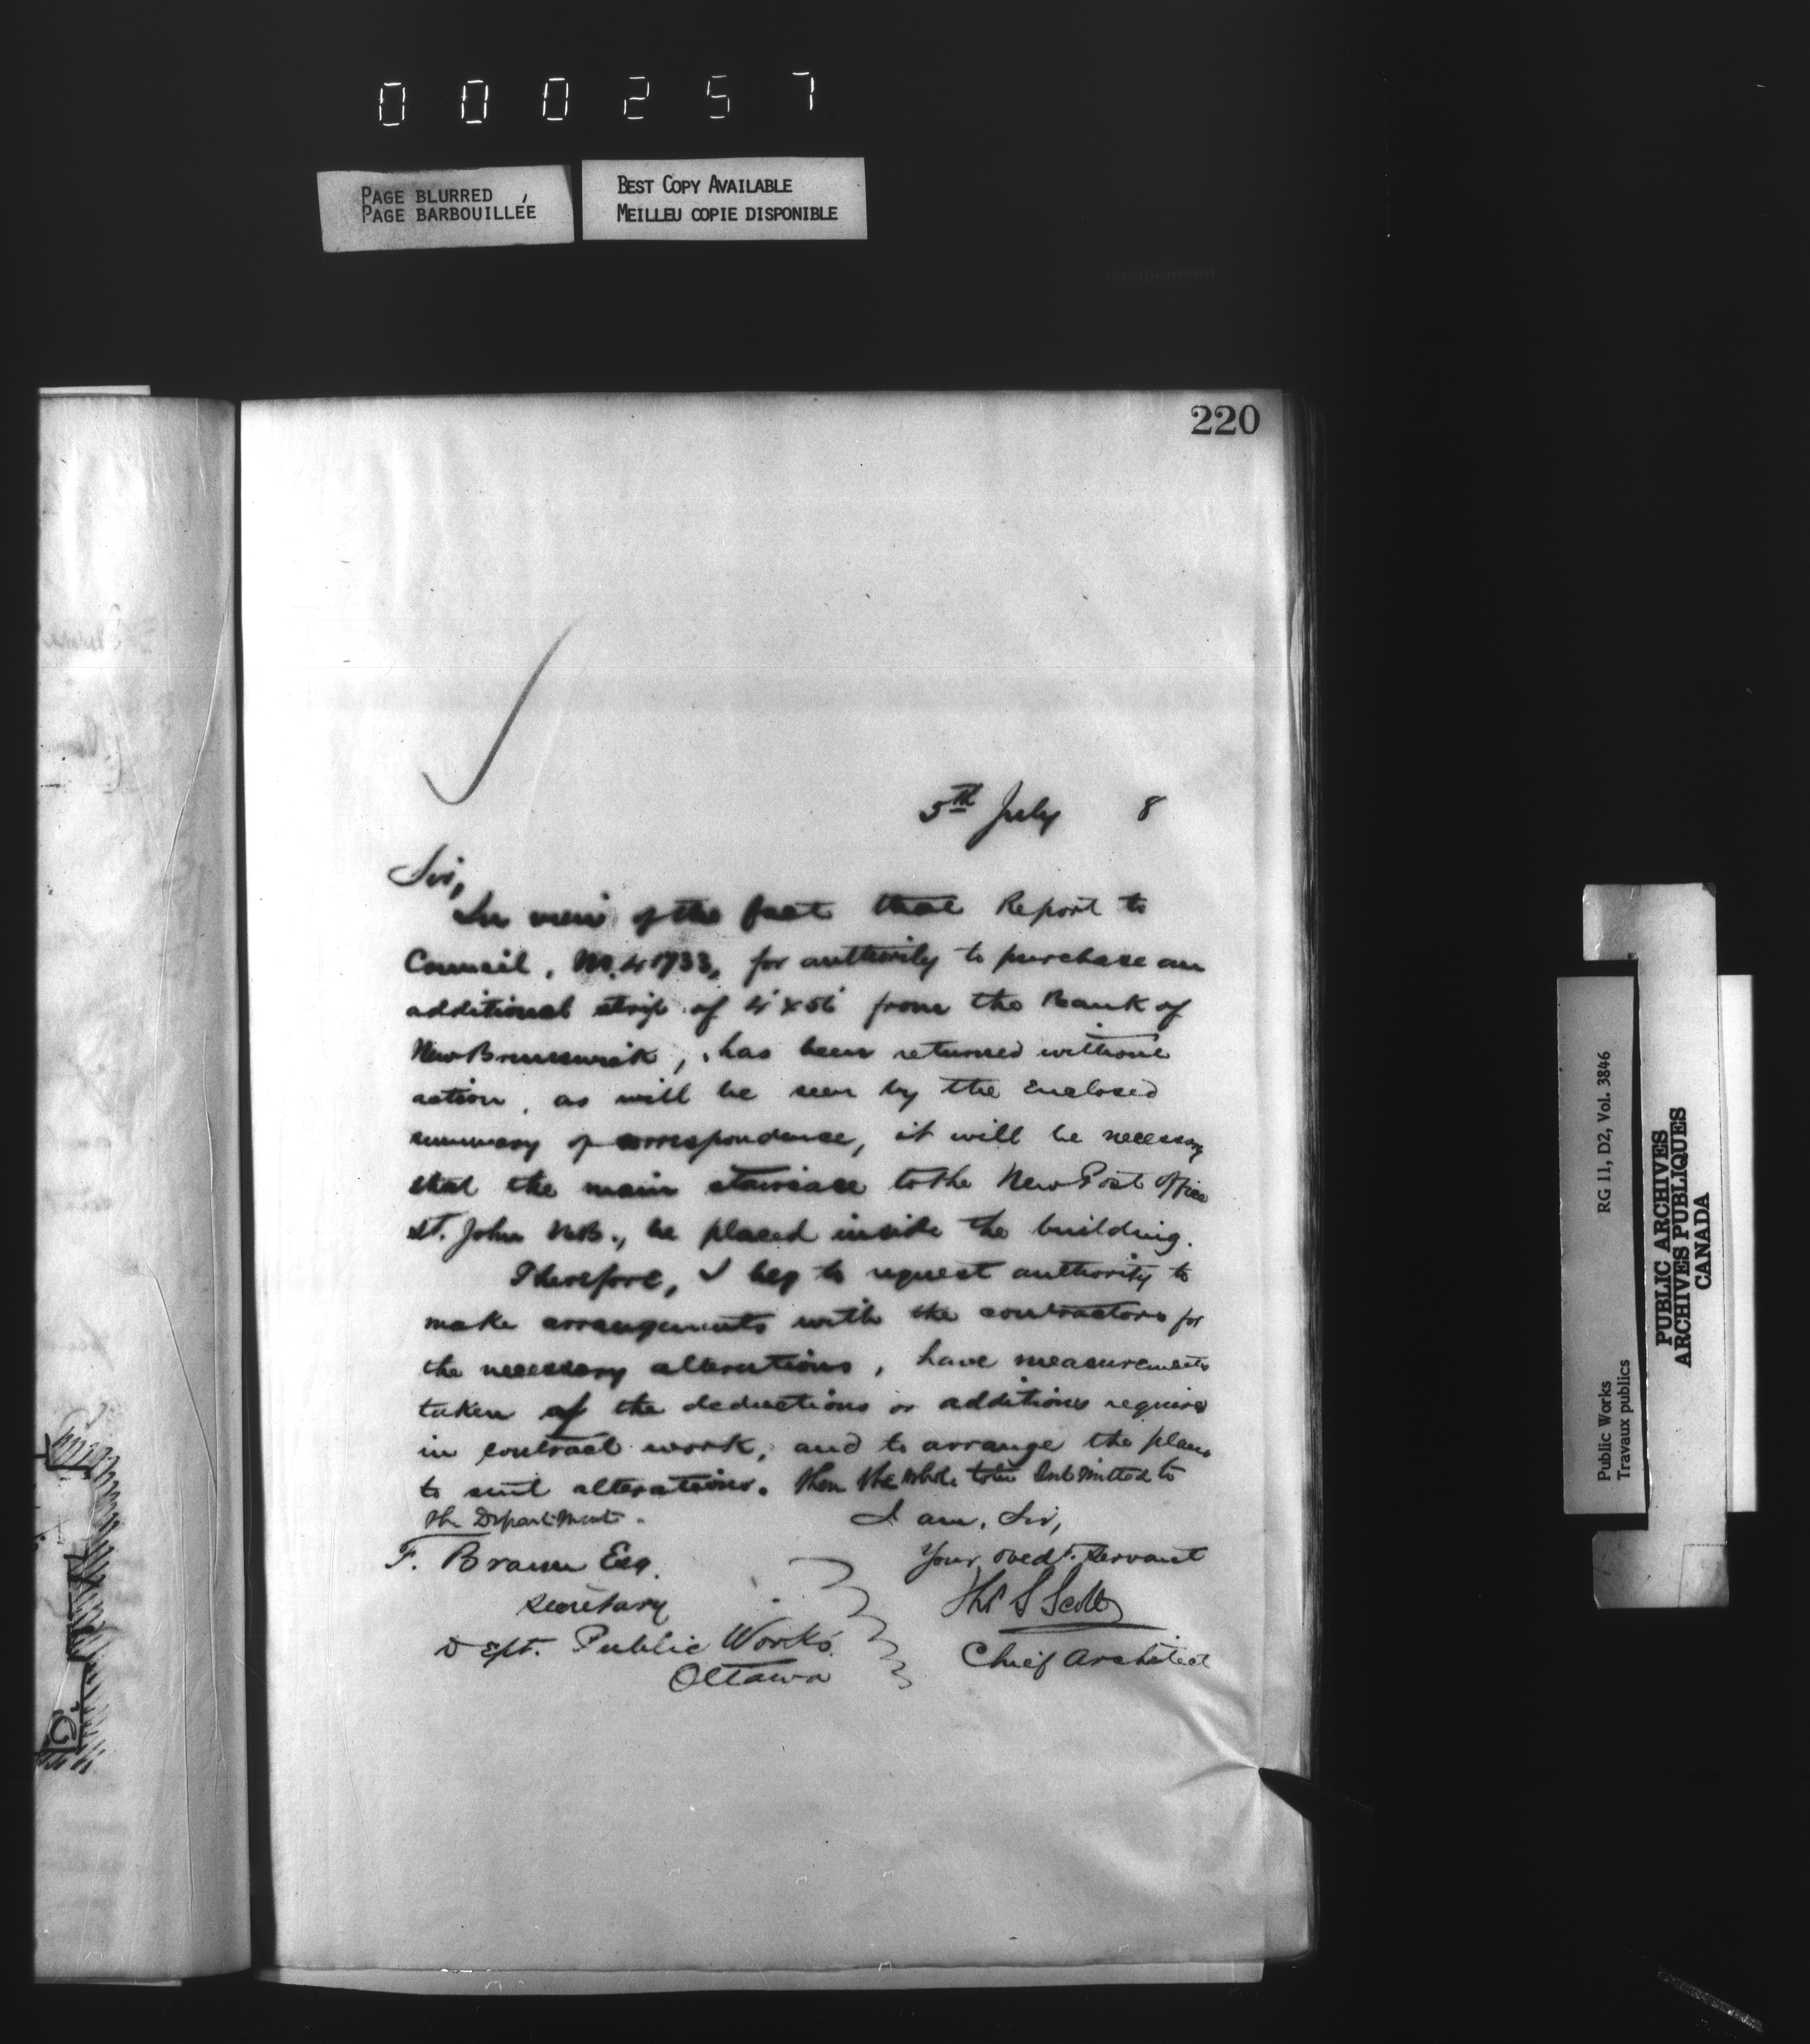 000257
PAGE BLURRED
PAGE BARBOUILLÉE
BEST COPY AVAILABLE
MEILLEU COPIE DISPONIBLE
220
5th July 8
Sir,
In view of the fact that Report to
Council, No. 41733, for authority to purchase an
additional strip of 4' x 56' from the Bank of
New Brunswick, has been returned without
action, as will be seen by the enclosed
summary of correspondence, it will be necessary
that the main staircase to the New Post Office
St. John N.B., be placed inside the building.
Therefore, I beg to request authority to
make arrangements with the contractors for
the necessary alterations, have measurements
taken of the deductions or additions required
in contract work, and to arrange the plans
to suit alterations. Then the whole to be submitted to
the Department.
I am, Sir,
Your obedt. Servant
Thos S Scott
Chief Architect
F. Braun Esq.
Secretary
Dept. Public Works
Ottawa
Public Works
Travaux publics
RG 11, D2, Vol. 3846
PUBLIC ARCHIVES
ARCHIVES PUBLIQUES
CANADA